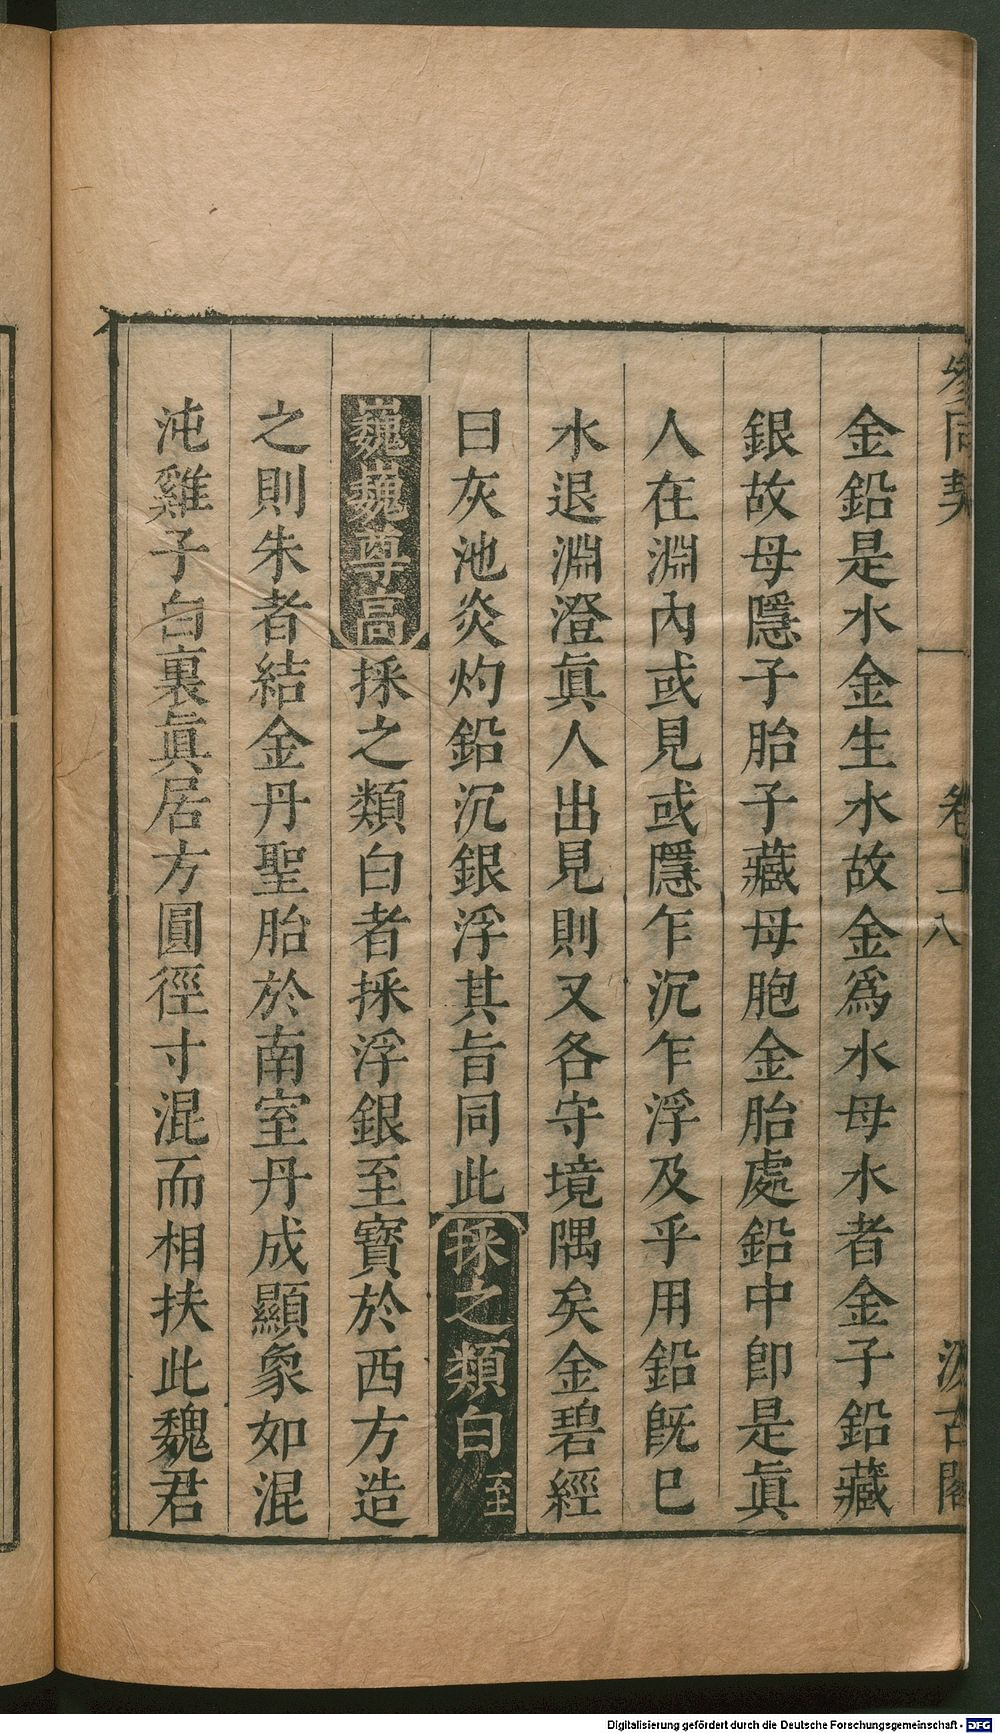 參同契 卷上 八 汲古閣
金鉛是水金生水故金爲水母水者金子鉛藏
銀故母隱子胎子藏母胞金胎處鉛中卽是眞
人在淵內或見或隱乍沉乍浮及乎用鉛旣巳
水退淵澄眞人出見則又各守境隅矣金碧經
曰灰池炎灼鉛沉銀浮其旨同此採之類白至
巍巍尊高採之類白者採浮銀至寳於西方造
之則朱者結金丹聖胎於南室丹成顯象如混
沌雞子白裏眞居方圓徑寸混而相扶此魏君
Digitalisierung gefördert durch die Deutsche Forschungsgemeinschaft - DFG